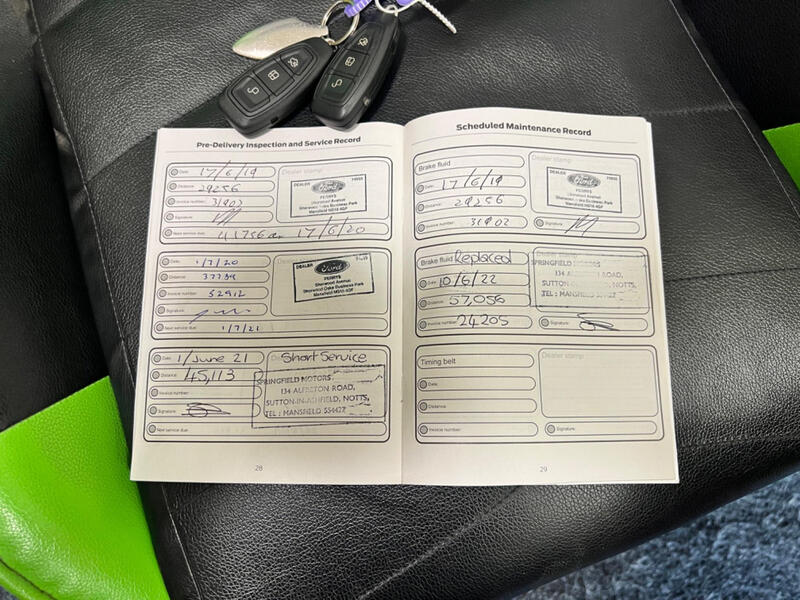 Pre-Delivery Inspection and Service Record
Date: 17/6/19
Dealer stamp
Distance: 29256
DEALER
Ford
PERRYS
Sherwood Avenue
Sherwood Oaks Business Park
Mansfield NG18 4GF
Invoice number: 31903
Signature:
Next service due: 41756 or 17/6/20
Date: 1/7/20
Distance:
DEALER
Ford
PERRYS
Sherwood Avenue,
Sherwood Oaks Business Park
Mansfield NG18 4GF
Invoice number: 52912
Signature:
Next service due: 1/7/21
Date: 1/June 21
Short Service
Distance: 45,113
Invoice number:
Signature:
SPRINGFIELD MOTORS
134 ALFRETON ROAD,
SUTTON-IN-ASHFIELD, NOTTS,
TEL: MANSFIELD 554427
Next service due:
28
Scheduled Maintenance Record
Brake fluid
Dealer stamp
Date: 17/6/19
Distance: 29256
Invoice number: 31902
DEALER
Ford
PERRYS
Sherwood Avenue
Sherwood Oaks Business Park
Mansfield NG18 4GF
Signature:
Brake fluid Replaced
Date: 10/6/22
Distance: 57,056
Invoice number: 24205
SPRINGFIELD MOTORS
134 ALFRETON ROAD,
SUTTON-IN-ASHFIELD, NOTTS,
TEL: MANSFIELD 554427
Signature:
Timing belt
Dealer stamp
Date:
Distance:
Invoice number:
Signature:
29